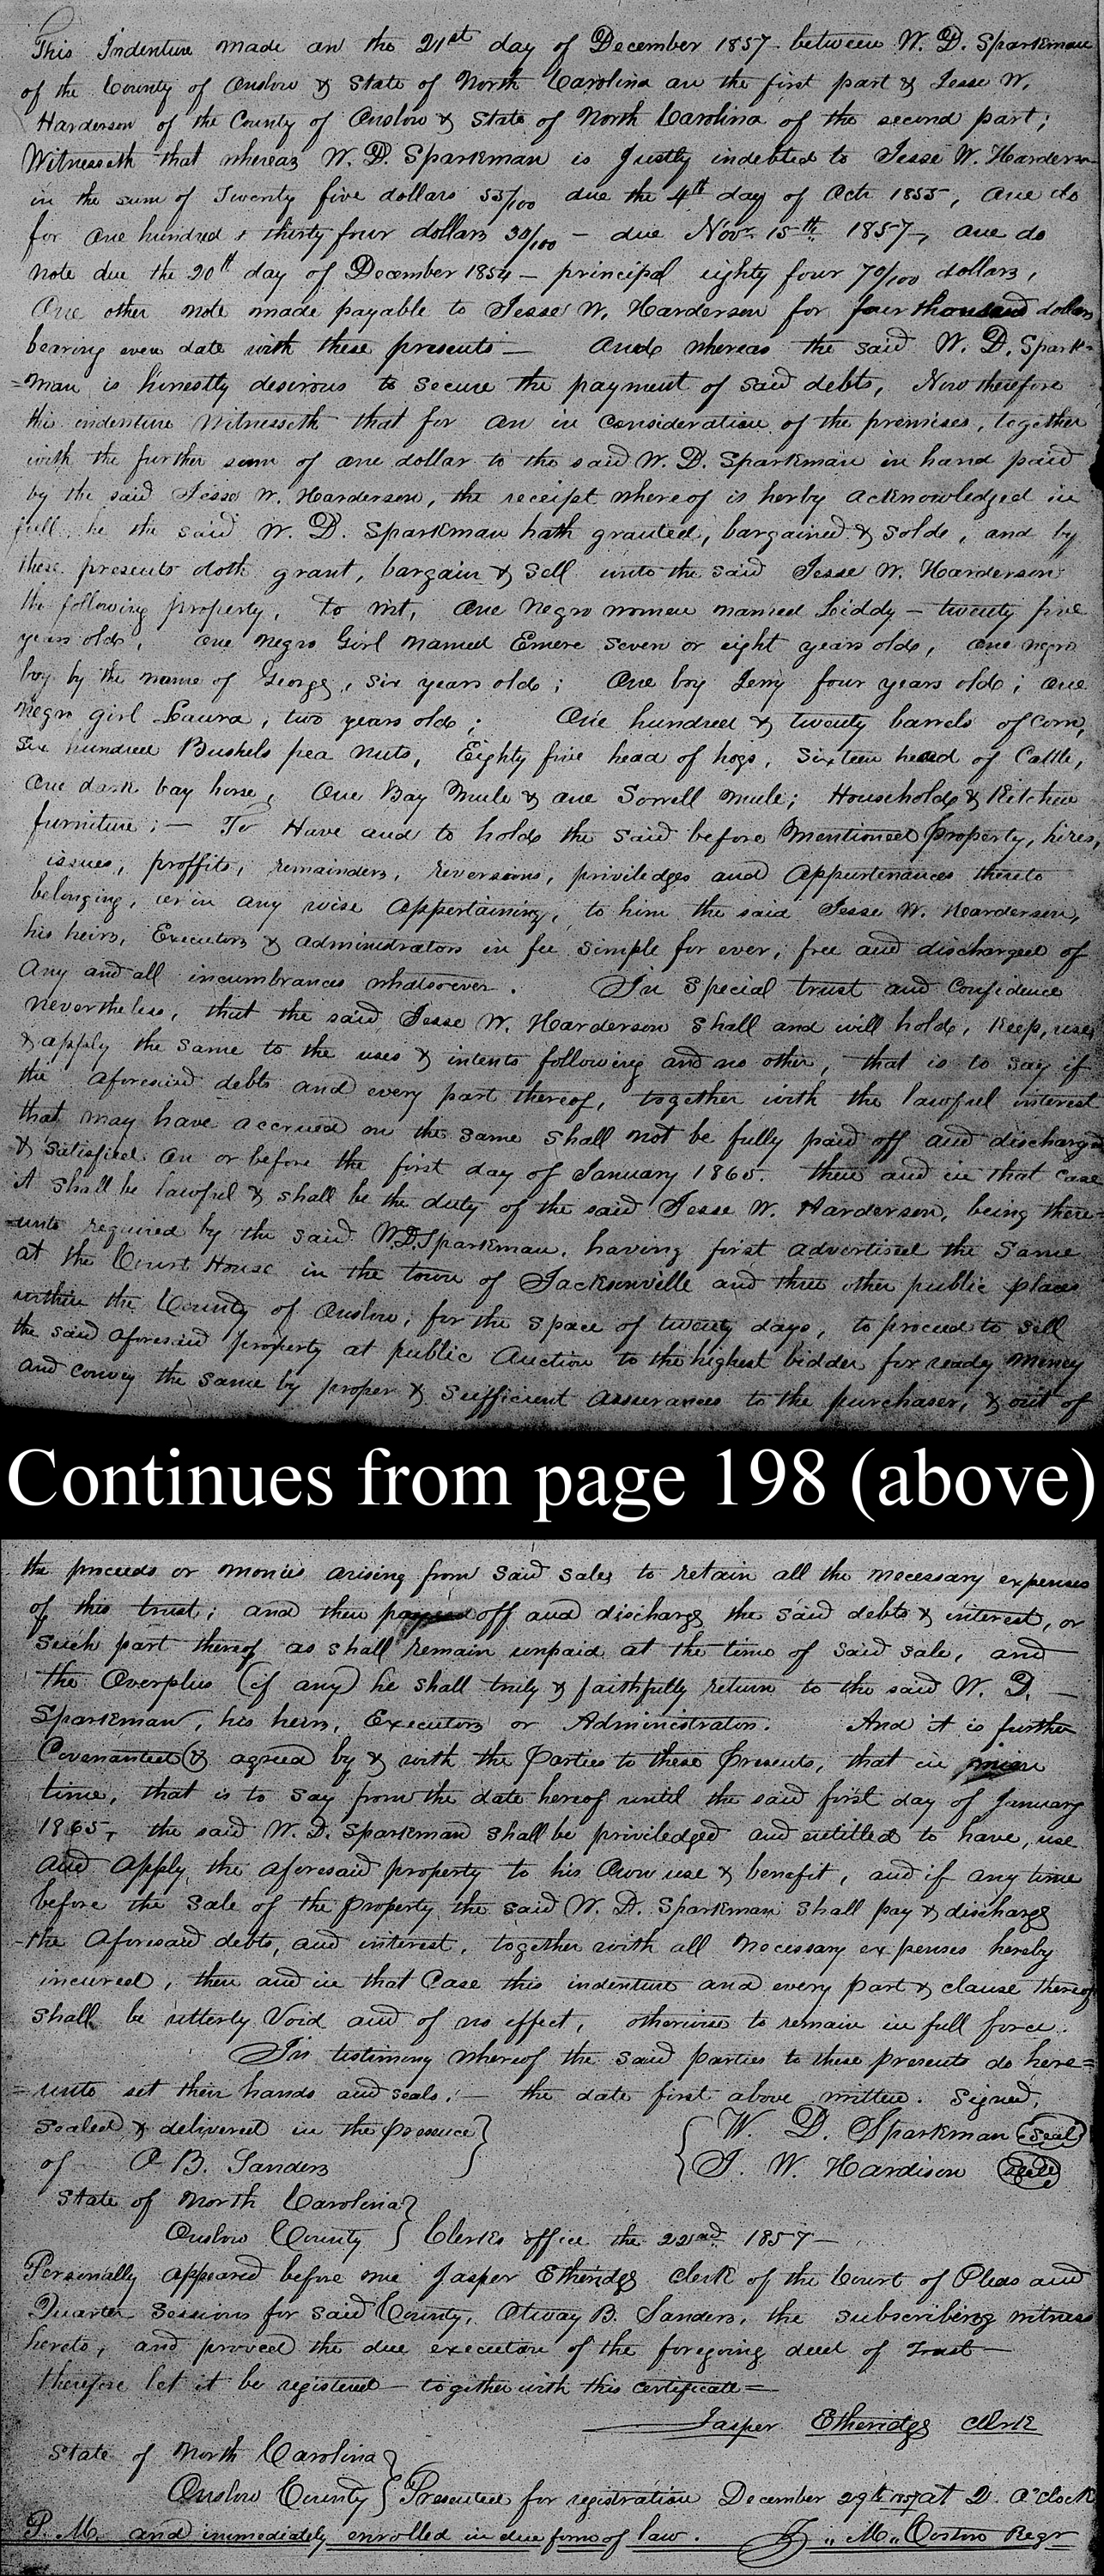 This Indenture made on the 21st day of December 1857 between W. D. Sparkman
of the County of Onslow & State of North Carolina on the first part & Jesse W.
Harderson of the County of Onslow & State of North Carolina of the second part;
Witnesseth that whereas W. D. Sparkman is justly indebted to Jesse W. Harderson
in the sum of Twenty five dollars 53/100 due the 4th day of Octr 1855, one do
for One hundred & thirty four dollars 30/100 — due Novr 15th 1857, one do
note due the 20th day of December 1854 — principal eighty four 70/100 dollars,
One other note made payable to Jesse W. Harderson for four thousand dollars
bearing even date with these presents — And whereas the said W. D. Spark-
=man is honestly desirous to secure the payment of said debts, Now therefore
this indenture Witnesseth that for an in consideration of the premises, together
with the further sum of one dollar to the said W. D. Sparkman in hand paid
by the said Jesse W. Harderson, the receipt whereof is herby acknowledged in
full. he the said W. D. Sparkman hath granted, bargained & sold, and by
these presents doth grant, bargain & sell unto the said Jesse W. Harderson
the following property, to wit, One negro woman named Liddy — twenty five
years old, one negro Girl named Emere seven or eight years old, one negro
boy by the name of George, six years old; One boy Jerry four years old; one
negro girl Laura, two years old; One hundred & twenty barrels of Corn,
Six hundred Bushels pea nuts, Eighty five head of hogs, Sixteen head of Cattle,
One dark bay horse, One Bay Mule & one Sorrell mule; Household & Kitchen
furniture; — To Have and to hold the said before Mentioned property, hires,
issues, proffits, remainders, reversions, priviledges and Appurtinances thereto
belonging, or in any wise Appertaining, to him the said Jesse W. Harderson,
his heirs, Executors & administrators in fee simple for ever, free and discharged of
Any and all incumbrances whatsoever. In special trust and confidence
nevertheless, that the said Jesse W. Harderson shall and will hold, keep, use,
& apply the same to the uses & intents following and no other, that is to say if
the aforesaid debts and every part thereof, together with the lawful interest
that may have accrued on the same shall not be fully paid off and discharged
& satisfied on or before the first day of January 1865. then and in that case
it shall be lawful & shall be the duty of the said Jesse W. Harderson, being there=
=unto required by the said W.D. Sparkman, having first advertised the same
at the Court House in the town of Jacksonville and three other public places
within the County of Onslow, for the space of twenty days, to proceed to sell
the said aforesaid property at public Auction to the highest bidder for ready money
and convey the same by proper & sufficient assurances to the purchaser, & out of
Continues from page 198 (above)
the proceeds or monies arising from said sale, to retain all the necessary expenses
of this trust; and then off and discharge the said debts & interest, or
such part thereof as shall remain unpaid at the time of said sale, and
the Overplus (if any) he shall truly & faithfully return to the said W. D. —
Sparkman, his heirs, Executors or Administrators. And it is further
Covenanted & agreed by & with the Parties to these Presents, that in
time, that is to say from the date hereof until the said first day of January
1865, the said W. D. Sparkman shall be priviledged and entitled to have, use
and apply the aforesaid property to his Own use & benefit, and if any time
before the sale of the property the said W. D. Sparkman shall pay & discharge
the aforesaid debts, and interest, together with all necessary expenses hereby
incured, then and in that Case this indenture and every part & clause thereof
shall be utterly Void and of no effect, otherwise to remain in full force.
In testimony whereof the said parties to these presents do here=
=unto set their hands and seals, — the date first above written. Signed,
sealed & delivered in the presence } { W. D. Sparkman (Seal)
of O. B. Sanders } { J. W. Hardison (Seal)
State of North Carolina }
Onslow County } Clerks office the 22nd 1857 —
Personally appeared before me Jasper Etheridge clerk of the Court of Pleas and
Quarter Sessions for said County, Otway B. Sanders, the subscribing witness
hereto, and proved the due execution of the foregoing deed of Trust —
therefore let it be registered — together with this certificate =
Jasper Etheridge Clerk
State of North Carolina }
Onslow County } Presented for registration December 29th 1857 at 2. O'clock
P. M. and immediately enrolled in due form of law. J,, M,, Costin Regr